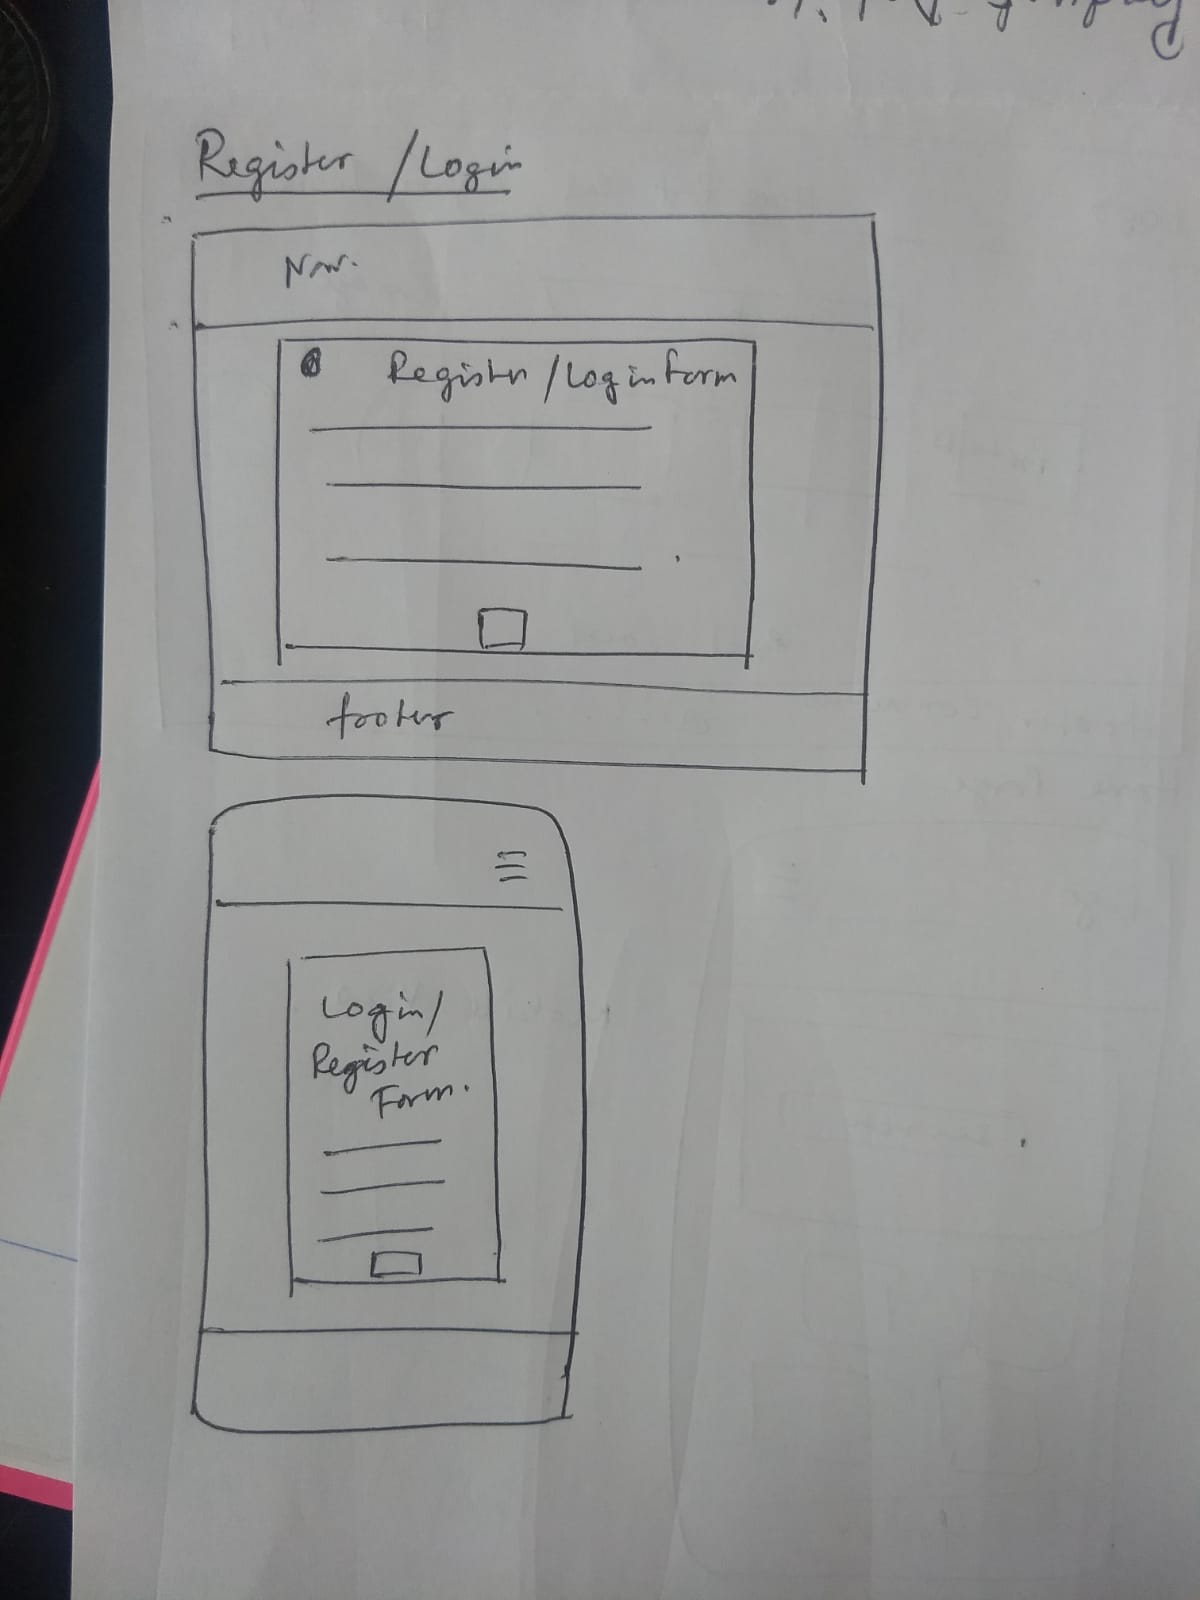 Register / Login
Nav.
Register / Login Form
footer
Login/
Register
Form.